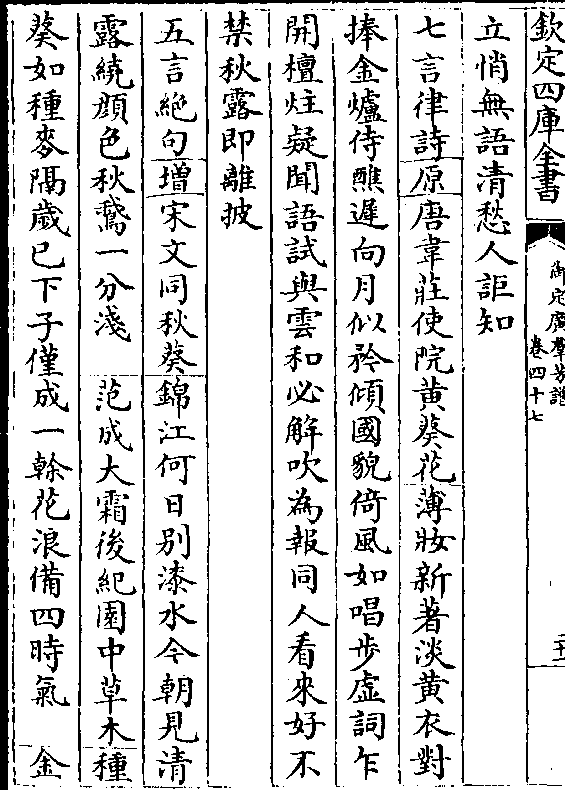 欽定四庫全書
御定廣羣芳譜
卷四十七
立悄無語清愁人詎知
七言律詩原唐韋莊使院黃葵花薄妝新著淡黃衣對
捧金爐侍醮遲向月似矜傾國貌倚風如唱步虛詞乍
開檀炷疑聞語試與雲和必解吹為報同人看來好不
禁秋露即離披
五言絶句增宋文同秋葵錦江何日别漆水今朝見清
露繞顔色秋鵞一分淺　范成大霜後紀園中草木種
葵如種麥隔歲已下子僅成一榦花浪備四時氣　金